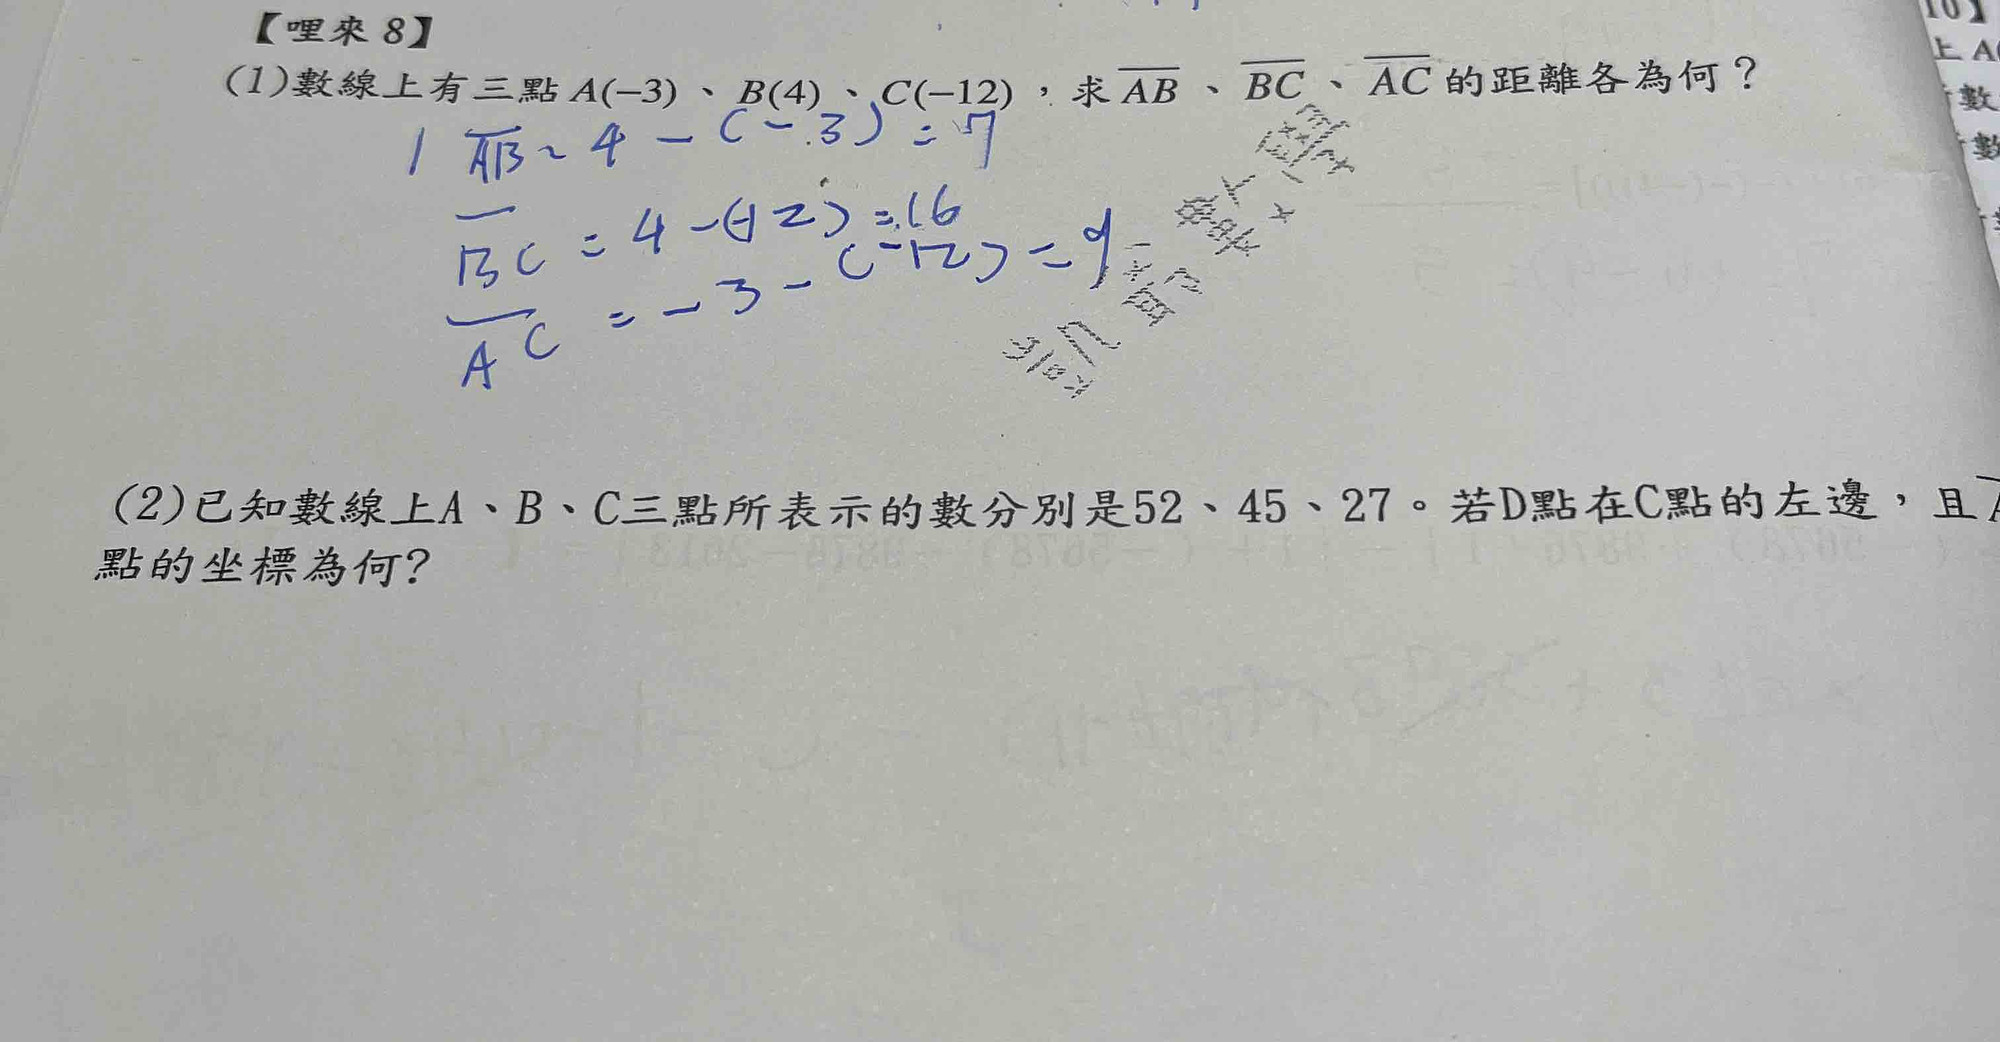 【哩來 8】
(1)數線上有三點 A(−3)、B(4)、C(−12)，求 AB、BC、AC 的距離各為何？
1 AB ~ 4 - (-3) = 7
BC = 4 - (-12) = 16
AC = -3 - (-12) = 9
(2)已知數線上A、B、C三點所表示的數分別是52、45、27。若D點在C點的左邊，且
點的坐標為何?
10】
上 A(
數
數